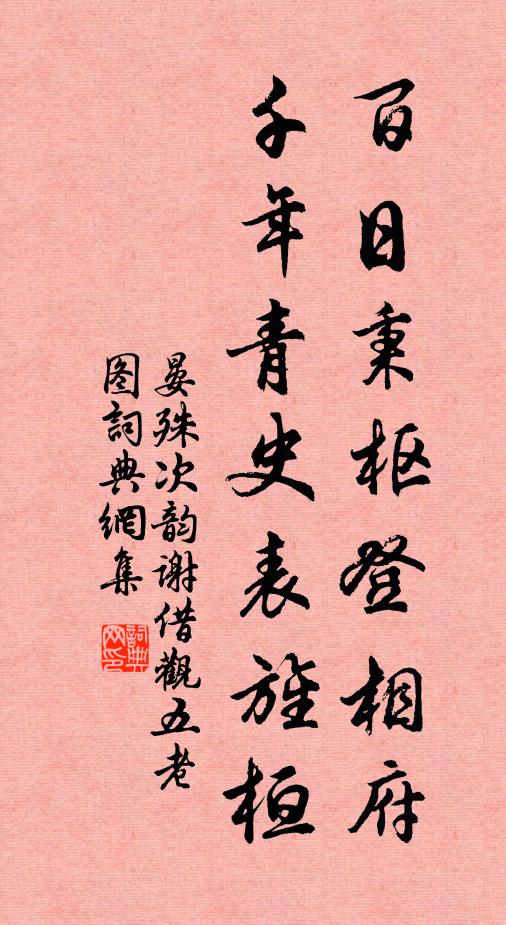 百日秉枢登相府
千年青史表旌桓
晏殊次韵谢借觀五老
图詞典網集
詞典网印